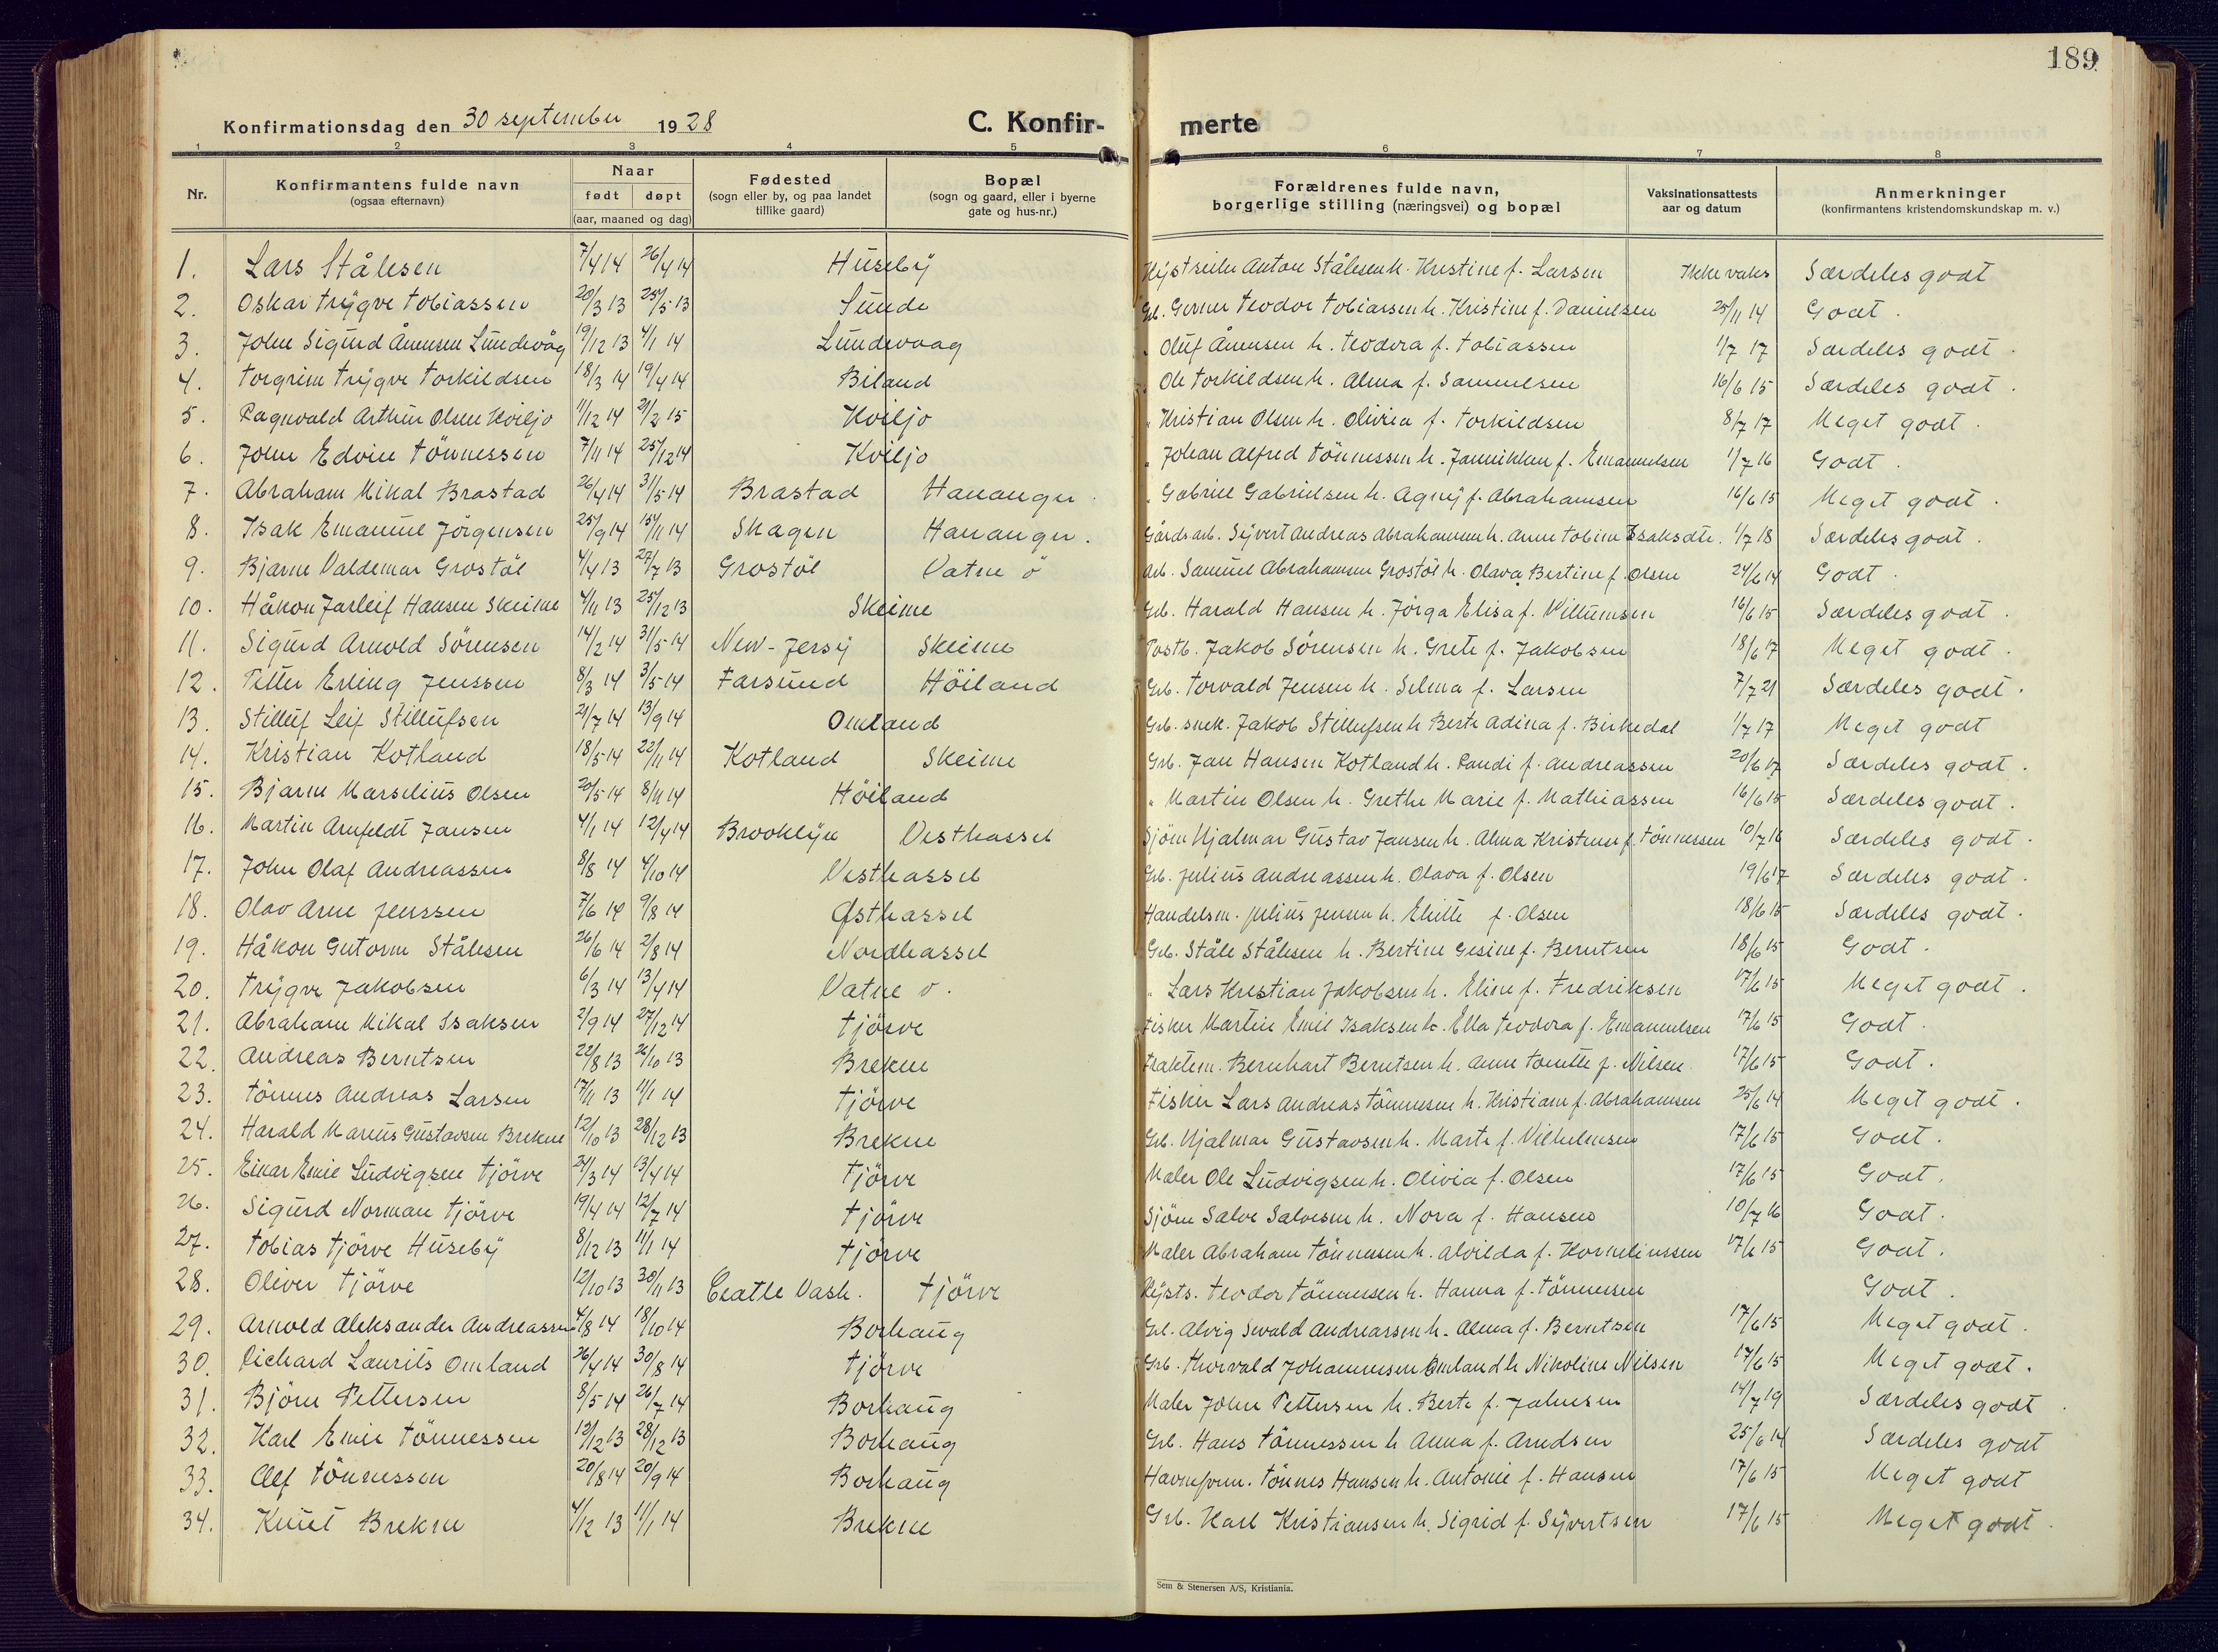 189
Konfirmationsdag den 30 september 1928 C. Konfir- merte
1 2 3 4 5 6 7 8
Nr. Konfirmantens fulde navn (ogsaa efternavn) Naar født døpt (aar, maaned og dag) Fødested (sogn eller by, og paa landet tillike gaard) Bopæl (sogn og gaard, eller i byerne gate og hus-nr.) Forældrenes fulde navn, borgerlige stilling (næringsvei) og bopæl Vaksinationsattests aar og datum Anmerkninger (konfirmantens kristendomskundskap m. v.)
1. Lars Stålesen 7/4 14 26/4 14 Huseby Anton Stålesen h. Kristine f. Larsen Ikke vaks Særdeles godt
2. Oskar Trygve Tobiassen 20/3 13 25/5 13 Sunde Gb. Gerner Teodor Tobiassen h. Kristine f. Danielsen 25/11 14 Godt.
3. John Sigurd Åmensen Lundevåg 19/12 13 4/1 14 Lundevaag " Oluf Åmensen h. Teodora f. Tobiassen 1/7 17 Særdeles godt.
4. Torgrim Trygve Torkildsen 18/3 14 19/4 14 Biland " Ole Torkildsen h. Alma f. Samuelsen 16/6 15 Særdeles godt.
5. Ragnvald Arthur Olsen Kviljo 11/12 14 21/2 15 Kviljo " Kristian Olsen h. Olivia f. Torkildsen 8/7 17 Meget godt.
6. John Edvin Tönnessen 7/11 14 25/12 14 Kviljo " Johan Alfred Tönnessen h. Jannikken f. Emanuelsen 1/7 16 Godt.
7. Abraham Mikal Brastad 26/4 14 31/5 14 Brastad Hananger. " Gabriel Gabrielsen h. Agny f. Abrahamsen 16/6 15 Meget godt.
8. Isak Emanuel Jörgensen 25/9 14 15/11 14 Skagen Hananger. Gårdsarb. Syvert Andreas Abrahamsen h. Anne Tobine Isaksdtr. 1/7 18 Særdeles godt.
9. Bjarne Valdemar Grostöl 4/4 13 27/7 13 Grostöl Vatne ö Arb. Samuel Abrahamsen Grostöl h. Olava Bertine f. Olsen 24/6 14 Godt.
10. Håkon Jarleif Hansen Skeime 4/11 13 25/12 13 Skeime Gb. Harald Hansen h. Jörga Elisa f. Villumsen 16/6 15 Særdeles godt.
11. Sigurd Arnold Sörensen 14/2 14 31/5 14 New-Jersy Skeime Postb. Jakob Sörensen h. Grete f. Jakobsen 18/6 17 Meget godt.
12. Petter Erling Jenssen 8/3 14 3/5 14 Farsund Höiland Grb. Torvald Jensen h. Selma f. Larsen 7/7 21 Særdeles godt.
13. Stilluf Leif Stillufsen 21/7 14 13/9 14 Omland Grb. snek. Jakob Stillufsen h Berte Adina f. Birkedal 1/7 17 Meget godt
14. Kristian Kotland 18/5 14 22/11 14 Kotland Skeime Grb. Jan Hansen Kotland h. Randi f. Andreassen 20/6 17 Særdeles godt.
15. Bjarne Marselius Olsen 20/5 14 8/11 14 Höiland " Martin Olsen h. Grethe Marie f. Mathiassen 16/6 15 Særdeles godt.
16. Martin Arnfeldt Jansen 4/1 14 12/4 14 Brooklyn Vesthassel Sjöm Hjalmar Gustav Jansen h. Alma Kristine f. Tönnessen 10/7 16 Særdeles godt.
17. John Olaf Andreassen 8/8 14 4/10 14 Vesthassel Grb. Julius Andreassen h. Olava f. Olsen 19/6 17 Særdeles godt.
18. Olav Arne Jenssen 7/6 14 9/8 14 Østhassel Handelsm. Julius Jensen h. Elritte f. Olsen 18/6 15 Særdeles godt.
19. Håkon Gutorm Stålesen 26/6 14 2/8 14 Nordhassel Grb. Ståle Stålesen h. Bertine Gesine f. Berntsen 18/6 15 Godt.
20. Trygve Jakobsen 6/3 14 13/4 14 Vatne v. " Lars Kristian Jakobsen h. Eline f. Fredriksen 17/6 15 Meget godt.
21. Abraham Mikal Isaksen 2/9 14 27/12 14 Tjörve Fisker Martin Emil Isaksen h. Ella Teodora f. Emanuelsen 17/6 15 Godt.
22. Andreas Berntsen 22/8 13 26/10 13 Brekne Traktem. Bernhart Berntsen h. Anne Tomitte f. Nilsen 17/6 15 Godt.
23. Tönnes Andreas Larsen 17/11 13 11/1 14 Tjörve Fisker Lars Andreas Tönnessen h. Kristiane f. Abrahamsen 25/6 14 Meget godt.
24. Harald Marius Gustavsen Brekne 12/10 13 28/12 13 Brekne Grb. Hjalmar Gustavsen h. Marte f. Vilhelmsen 17/6 15 Godt.
25. Einar Emil Ludvigsen Tjörve 24/3 14 13/4 14 Tjörve Maler Ole Ludvigsen h. Olivia f. Olsen 17/6 15 Godt.
26. Sigurd Norman Tjörve 19/4 14 12/7 14 Tjörve Sjöm Salve Salvesen h. Nora f. Hansen 10/7 16 Godt.
27. Tobias Tjörve Huseby 8/12 13 11/1 14 Tjörve Maler Abraham Tönnesen h. Alvilda f. Korneliussen 17/6 15 Godt.
28. Oliver Tjörve 12/10 13 30/11 13 Ceatle Vash. Tjörve Kysts. Teodor Tönnesen h. Hanna f. Tönnesen Godt.
29. Arnold Aleksander Andreassen 4/8 14 18/10 14 Borhaug Grb. Alvig Sevald Andreassen h. Alma f. Berntsen 17/6 15 Meget godt.
30. Richard Laurits Omland 26/4 14 30/8 14 Tjörve Grb. Thorvald Johannesen Omland h Nikoline Nilsen 17/6 15 Meget godt.
31. Björn Pettersen 8/5 14 26/7 14 Borhaug Maler John Pettersen h. Berte f. Jahnsen 14/7 19 Særdeles godt.
32. Karl Emil Tönnessen 12/12 13 28/12 13 Borhaug Grb. Hans Tönnessen h Anna f. Arndsen 25/6 14 Særdeles godt
33. Alf Tönnessen 20/8 14 20/9 14 Borhaug Havnefrm. Tönnes Hansen h. Antonie f. Hansen 17/6 15 Meget godt
34. Knut Brekne 4/12 13 11/1 14 Brekne Grb. Karl Kristiansen h. Sigrid f. Syvertsen 17/6 15 Meget godt.
Sem & Stenersen A/S, Kristiania.